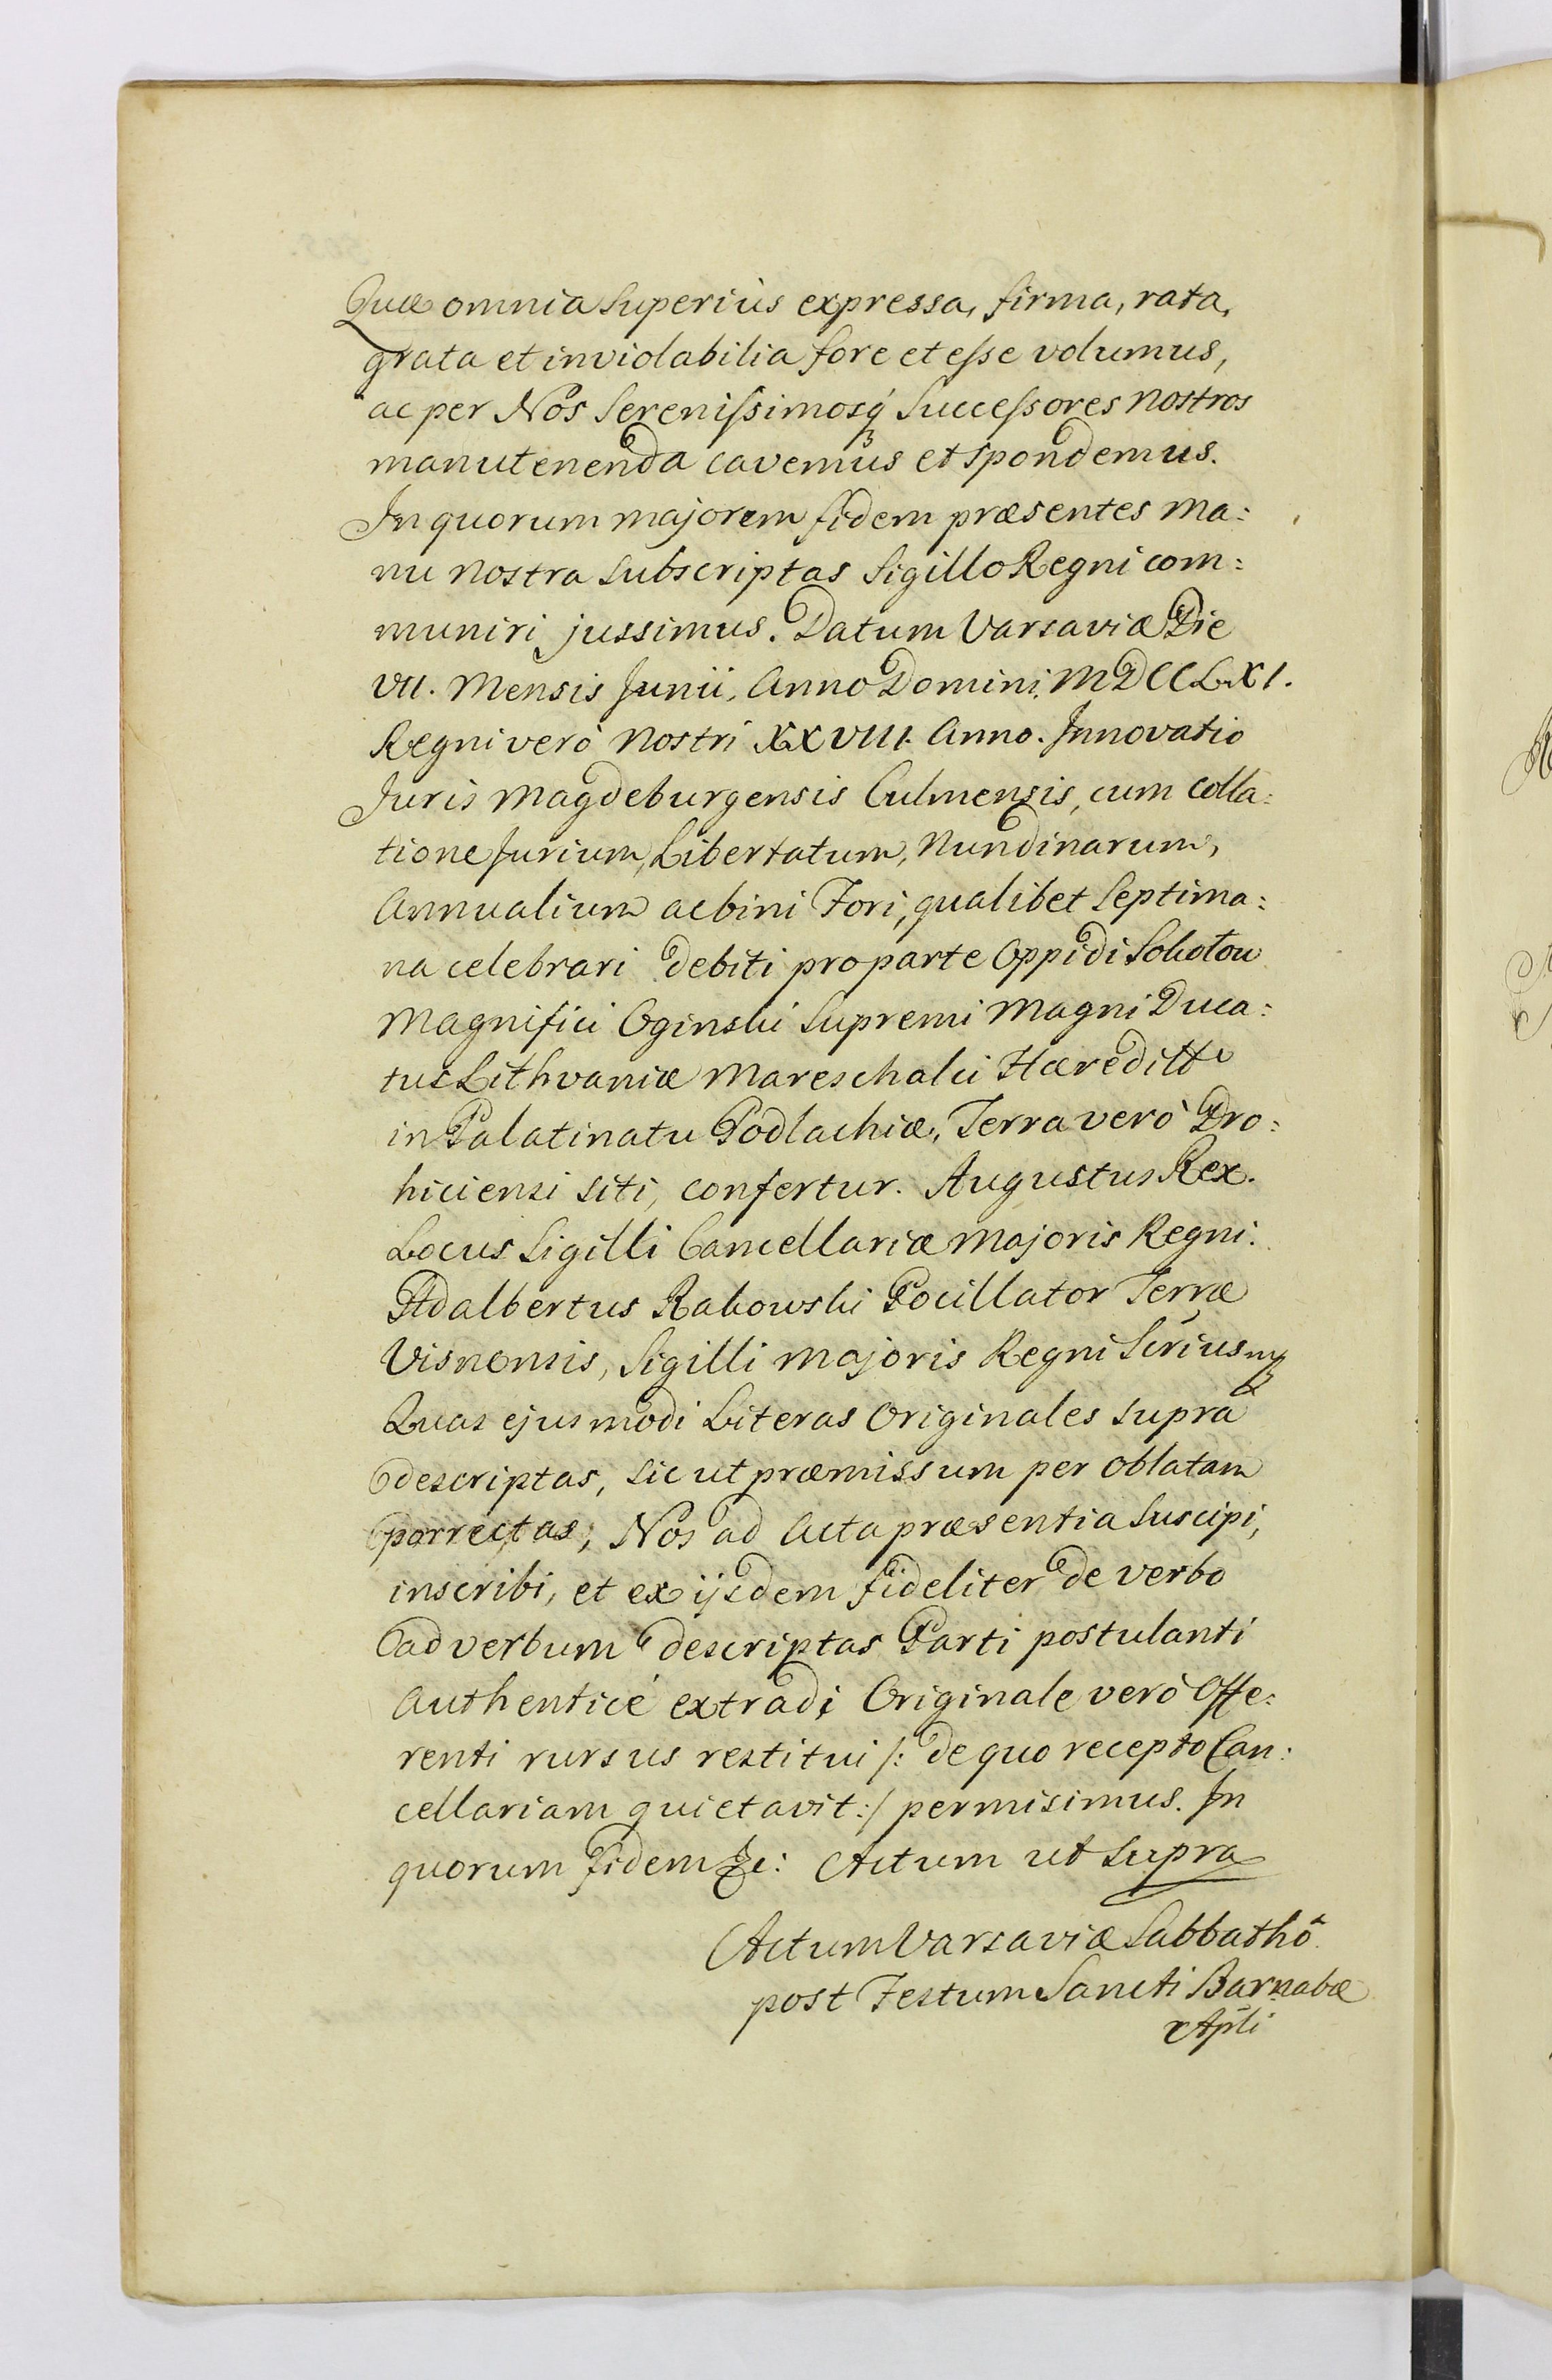 Quæ omnia Superiùs expressa, firma, rata,
grata et inviolabilia fore et eſse volumus,
ac per Nos Sereniſsimosq́ꝫ Succeſsores Nostros
manutenenda cavemus et spondemus.
In quorum majorem fidem præsentes Ma:
nu Nostra Subscriptas Sigillo Regni com:
muniri jussimus. Datum Varsaviæ Die
VII. Mensis Junii, Anno Domini MDCCLXI.
Regni verò Nostri XXVIII. Anno. Innovatio
Juris Magdeburgensis Culmensis, cum Colla:
tione Jurium, Libertatum, Nundinarum,
Annualium ac bini Fori, qualibet Septima:
na celebrari debiti pro parte Oppidi Sokołow
Magnifici Oginski Supremi Magni Duca:
tus Lithvaniæ Mareschalci Hæreditti
in Palatinatu Podlachiæ, Terra verò Dro:
hiciensi siti, confertur. Augustus Rex.
Locus Sigilli Cancellariæ Majoris Regni.
Adalbertus Rakowski Pocillator Terræ
Visnensis, Sigilli Majoris Regni Srius mꝑ
Quas ejusmodi Literas Originales supra
descriptas, sic ut præmissum per oblatam
porrectas; Nos ad Acta præsentia Suscipi,
inscribi, et ex ijsdem fideliter de verbo
ad verbum descriptas Parti postulanti
Authenticè extradi Originale verò Offe:
renti rursus restitui /: de quo recepto Can:
cellariam quietavit :/ permisimus. In
quorum fidem &c: Actum ut Supra
Actum Varsaviæ Sabbathô
post Festum Sancti Barnabæ
Apli